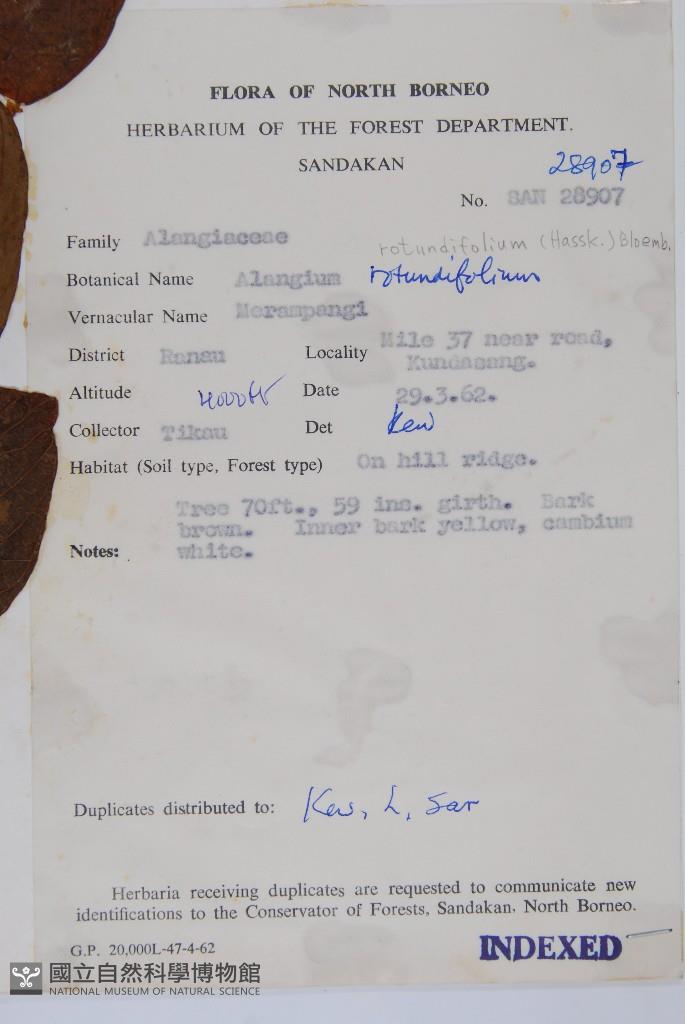 FLORA OF NORTH BORNEO
HERBARIUM OF THE FOREST DEPARTMENT.
SANDAKAN
28907
No. SAN 28907
Family Alangiaceae
rotundifolium (Hassk.) Bloemb.
Botanical Name Alangium rotundifolium
Vernacular Name Merampangi
District Ranau Locality Mile 37 near road, Kundasang.
Altitude 4000ft Date 29.3.62.
Collector Tikau Det Kew
Habitat (Soil type, Forest type) On hill ridge.
Tree 70ft., 59 ins. girth. Bark
brown. Inner bark yellow, cambium
Notes: white.
Duplicates distributed to: Kew, L, Sar
Herbaria receiving duplicates are requested to communicate new
identifications to the Conservator of Forests, Sandakan, North Borneo.
G.P. 20,000L-47-4-62
INDEXED
國立自然科學博物館
NATIONAL MUSEUM OF NATURAL SCIENCE